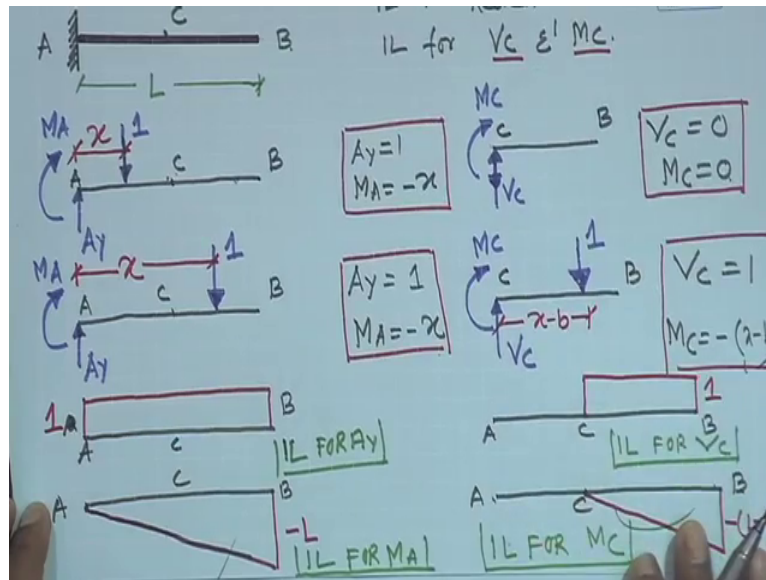 C
A
B
IL for VC & MC.
L
MA
x
1
A
C
B
Ay
Ay=1
MA=-x
MC
C
B
VC
VC=0
MC=0
MA
x
1
A
C
B
Ay
Ay=1
MA=-x
MC
1
C
B
x-b
VC
VC=1
MC=-(x-
1
A
C
B
IL FOR Ay
A
C
B
1
IL FOR VC
A
C
B
-L
IL FOR MA
A
C
B
-(L
IL FOR MC